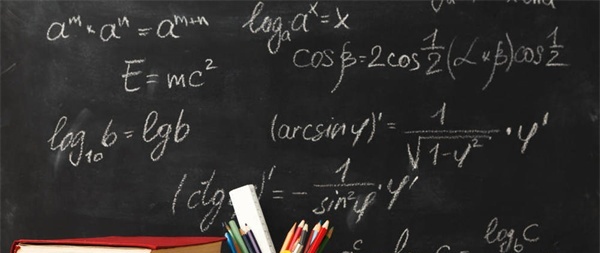 aᵐ × aⁿ = aᵐ⁺ⁿ
logₐ aˣ = x
cos β = 2cos 1/2 (α × β) cos 1/2
E = mc²
log₁₀ b = lgb
(arcsin φ)' = 1/√(1-φ²) · φ'
(ctg )' = - 1/sin²φ · φ'
log_b c